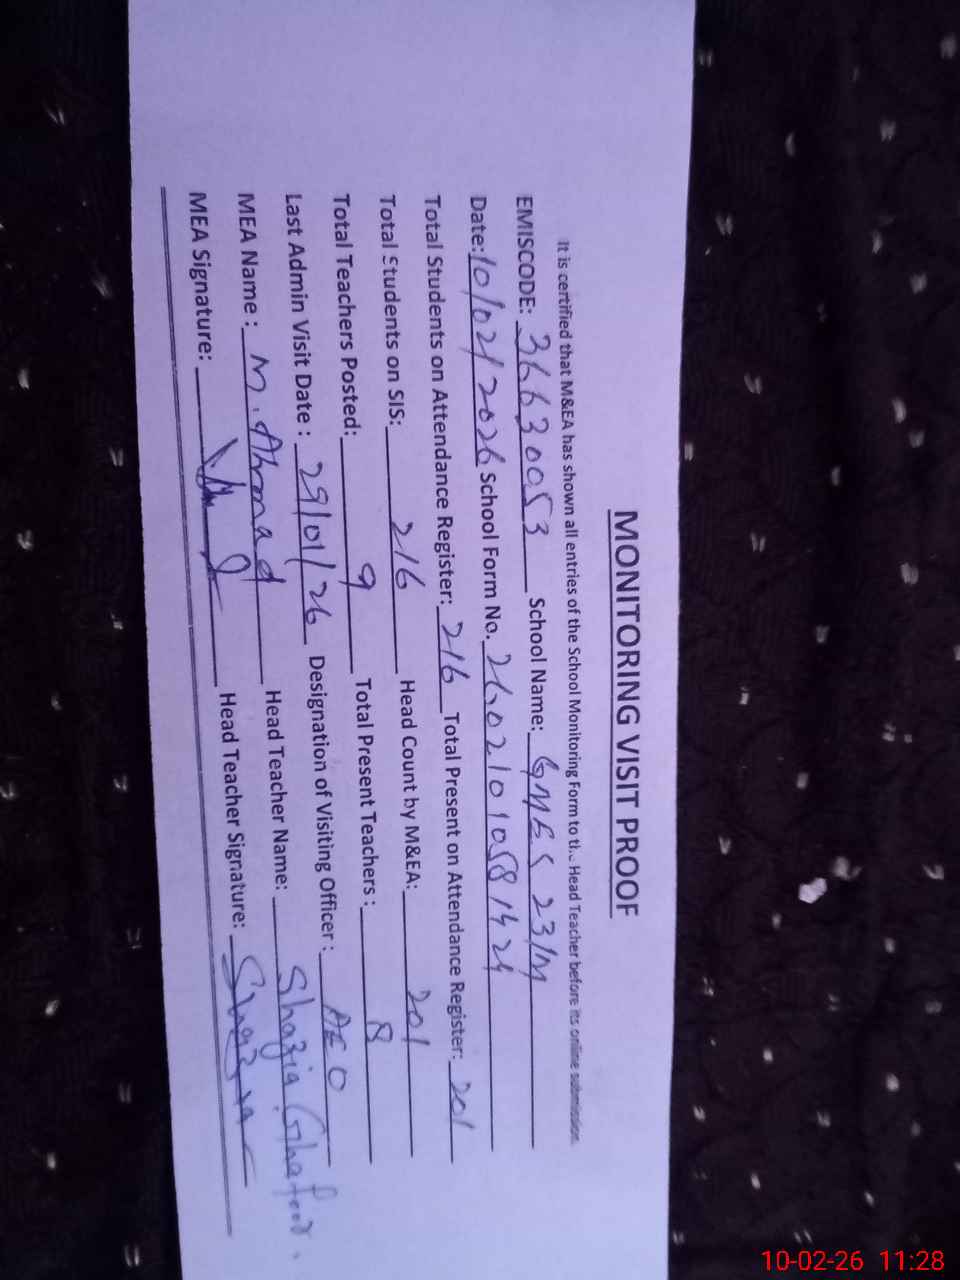 MONITORING VISIT PROOF
It is certified that M&EA has shown all entries of the School Monitoring Form to the Head Teacher before its online submission.
EMISCODE: 36630053 School Name: GMES 23/M
Date: 10/02/2026 School Form No. 26021010581424
Total Students on Attendance Register: 216 Total Present on Attendance Register: 201
Total Students on SIS: 216 Head Count by M&EA: 201
Total Teachers Posted: 9 Total Present Teachers: 8
Last Admin Visit Date: 29/01/26 Designation of Visiting Officer: AEO
MEA Name: M. Ahmad Head Teacher Name: Shazia Ghafoor.
MEA Signature: Head Teacher Signature: Shazia
10-02-26 11:28